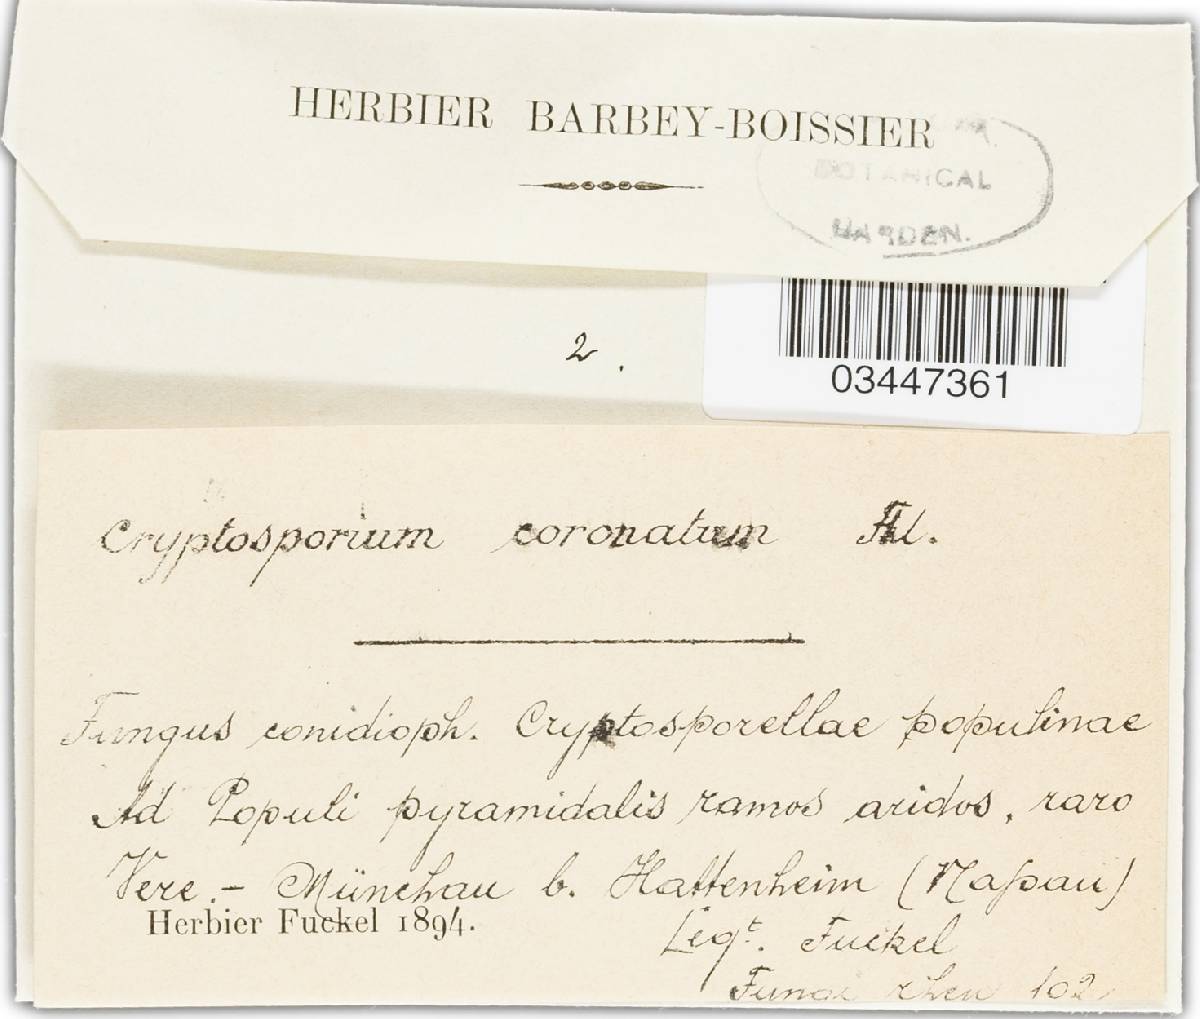 HERBIER BARBEY-BOISSIER
BOTANICAL
GARDEN.
2.
03447361
Cryptosporium coronatum Fkl.
Fungus conidioph. Cryptosporellae populinae
Ad Populi pyramidalis ramos aridos, raro
Vere. - Münchau b. Hattenheim (Naſsau)
Herbier Fuckel 1894.
Legt. Fuckel
Fungi rhen 102